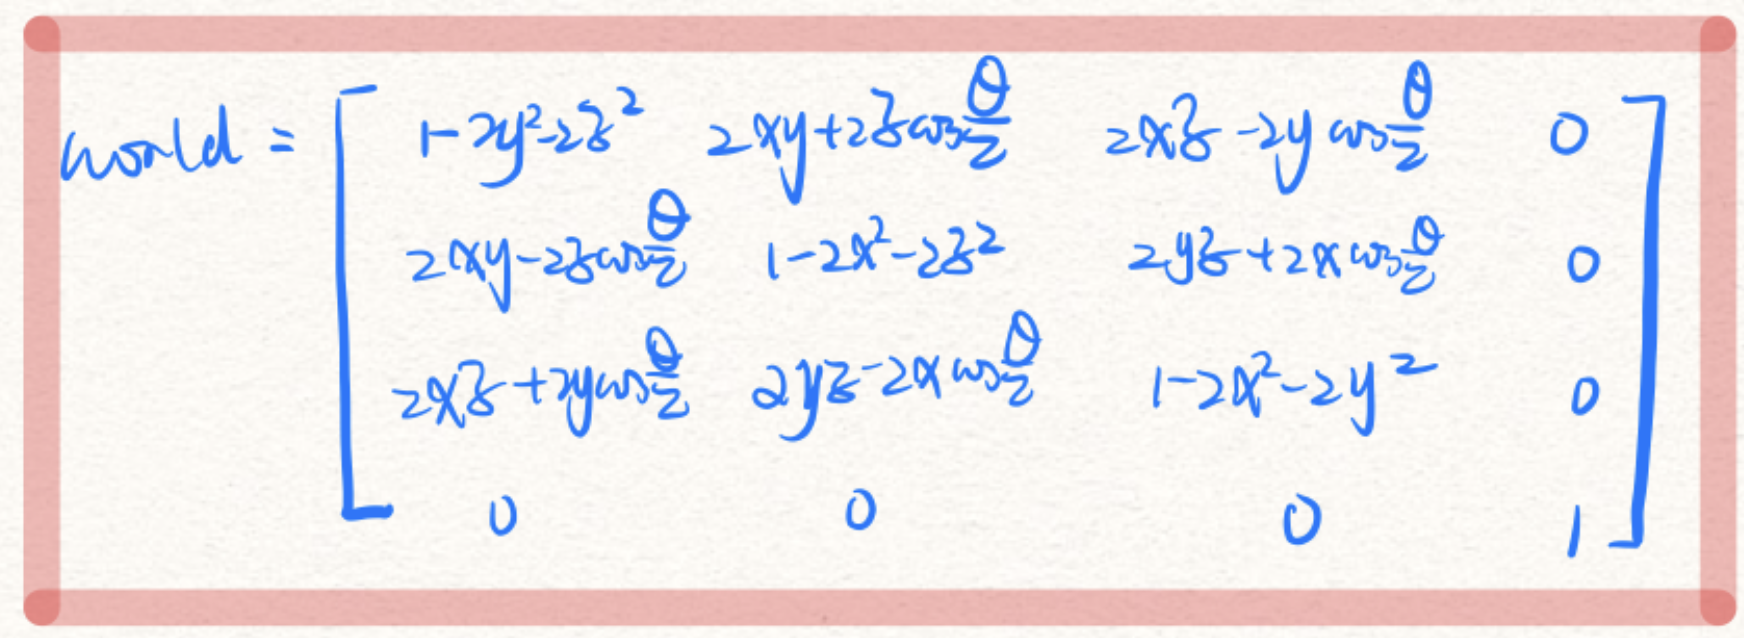 world = [ 1-2y²-2z² 2xy+2z cos θ/2 2xz-2y cos θ/2 0
2xy-2z cos θ/2 1-2x²-2z² 2yz+2x cos θ/2 0
2xz+2y cos θ/2 2yz-2x cos θ/2 1-2x²-2y² 0
0 0 0 1 ]